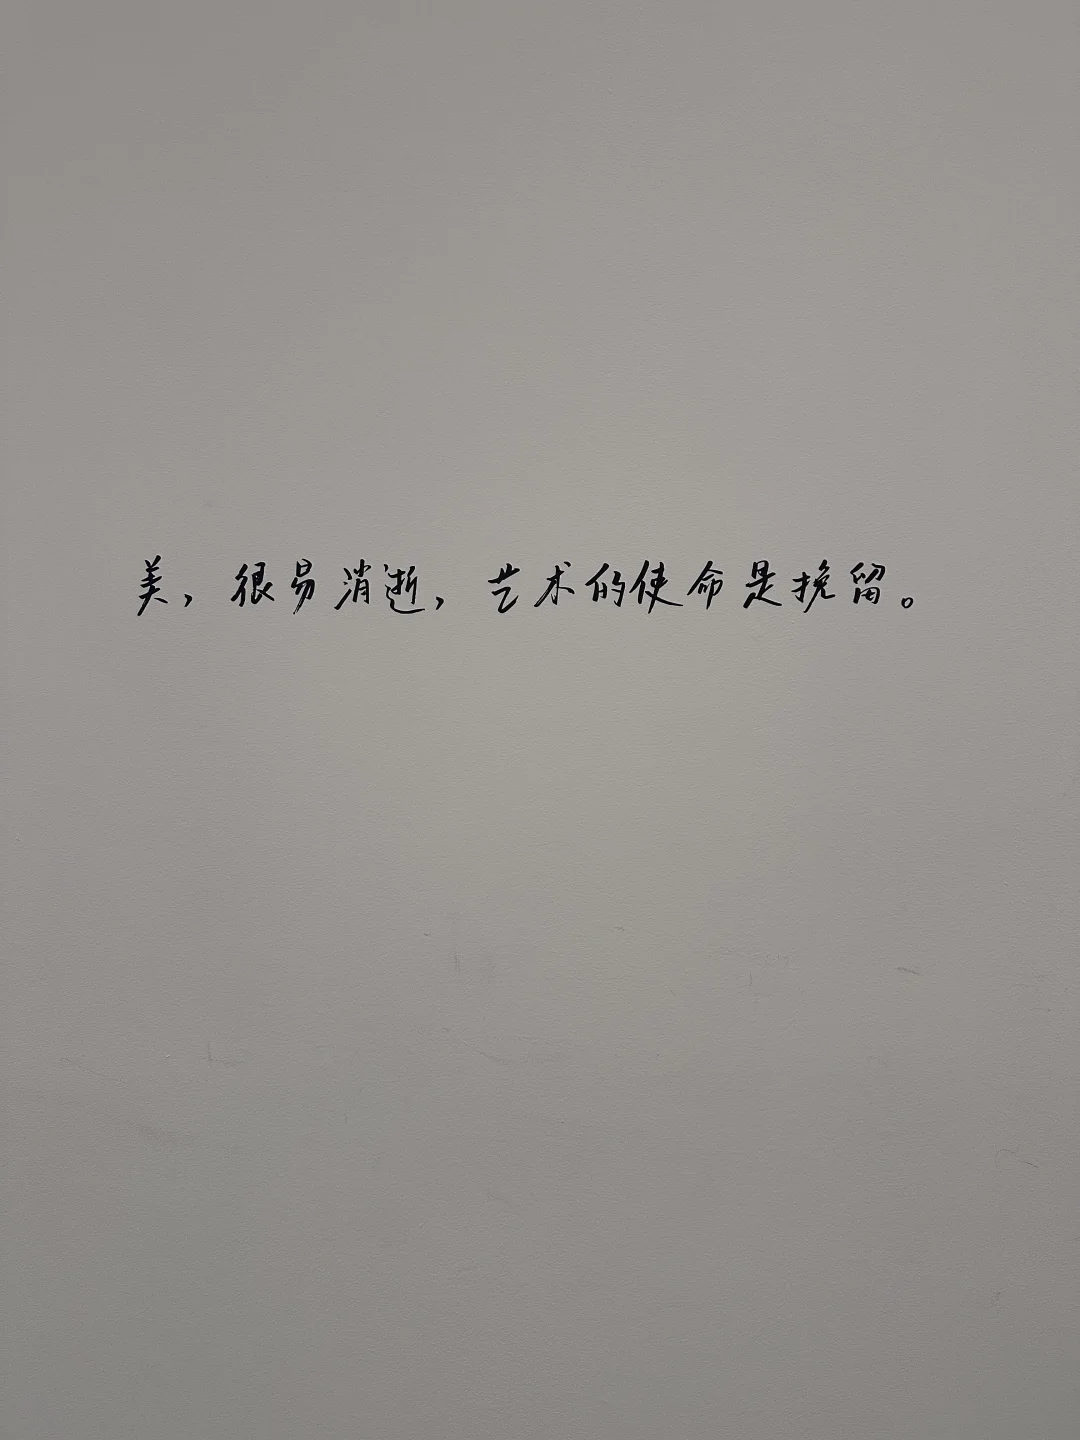 美，很易消逝，艺术的使命是挽留。